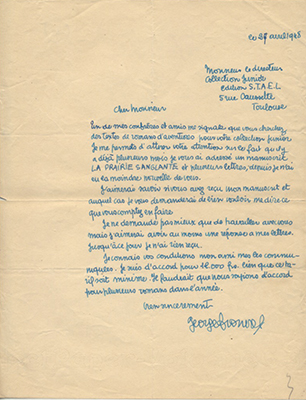 le 27 avril 1948
Monsieur le directeur
Collection Junior
édition S.T.A.E.L.
5 rue
Toulouse
Cher Monsieur
Un de mes confrères et amis me signale que vous cherchez
des textes de romans d'aventures pour votre collection junior
Je me permets d'attirer votre attention sur le fait qu'il y
a déjà plusieurs mois je vous ai adressé un manuscrit
LA PRAIRIE SANGLANTE et plusieurs lettres, depuis je n'ai
eu la moindre nouvelle de vous.
J'aimerais savoir si vous avez reçu mon manuscrit et
auquel cas je vous demanderai de bien vouloir me dire ce
que vous comptez en faire.
Je ne demande pas mieux que de travailler avec vous
mais j'aimerais avoir au moins une réponse à mes lettres.
Jusqu'à ce jour je n'ai rien reçu.
Je connais vos conditions mon ami me les commu-
niquées. Je suis d'accord pour 16.000 frs. bien que ce ta-
rif soit minime. Il faudrait que nous soyions d'accord
pour plusieurs romans dans l'année.
bien sincèrement